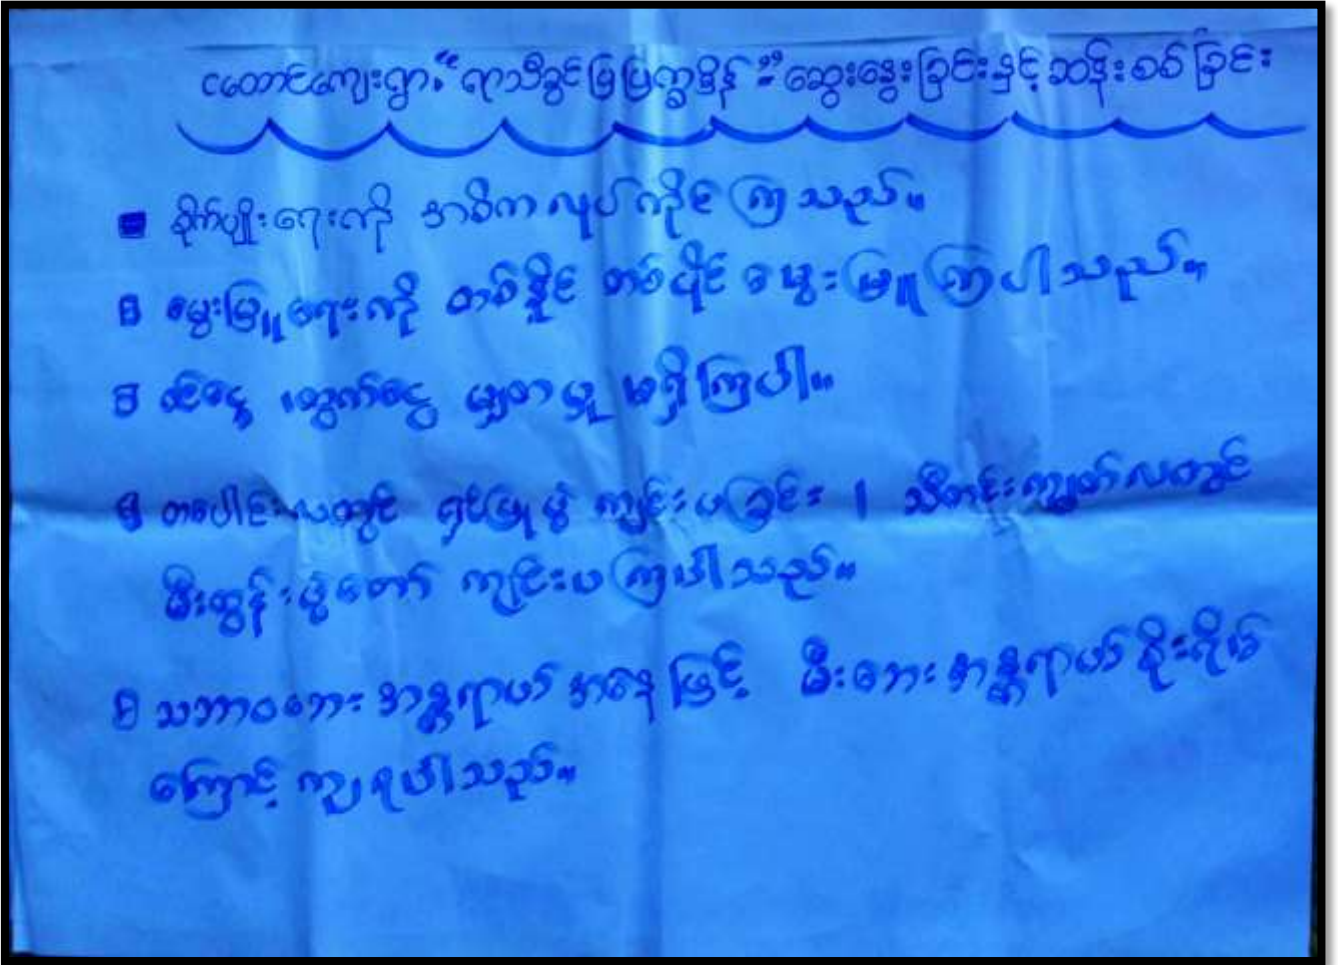 ငတောင်ကျေးရွာ "ရာသီခွင်ပြပြက္ခဒိန်" ဆွေးနွေးခြင်းနှင့် ဆန်းစစ်ခြင်း
စိုက်ပျိုးရေးကို အဓိက လုပ်ကိုင်ကြသည်။
မွေးမြူရေးကို တစ်နိုင် တစ်ပိုင် မွေးမြူကြပါသည်။
ဝင်ငွေ ထွက်ငွေ မျှတမှု မရှိကြပါ။
တပေါင်းလတွင် ရှင်ပြုပွဲ ကျင်းပခြင်း ၊ သီတင်းကျွတ်လတွင်
မီးထွန်းပွဲတော် ကျင်းပကြပါသည်။
သဘာဝဘေးအန္တရာယ် အနေဖြင့် မီးဘေးအန္တရာယ် စိုးရိမ်
ကြောင့်ကျရပါသည်။